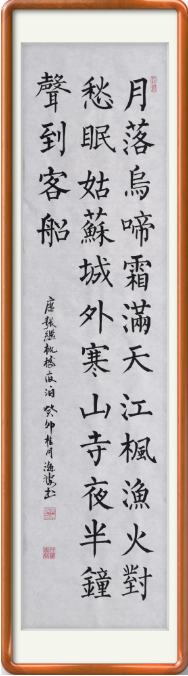 月落烏啼霜滿天江楓漁火對
愁眠姑蘇城外寒山寺夜半鐘
聲到客船
唐張繼楓橋夜泊 癸卯桂月